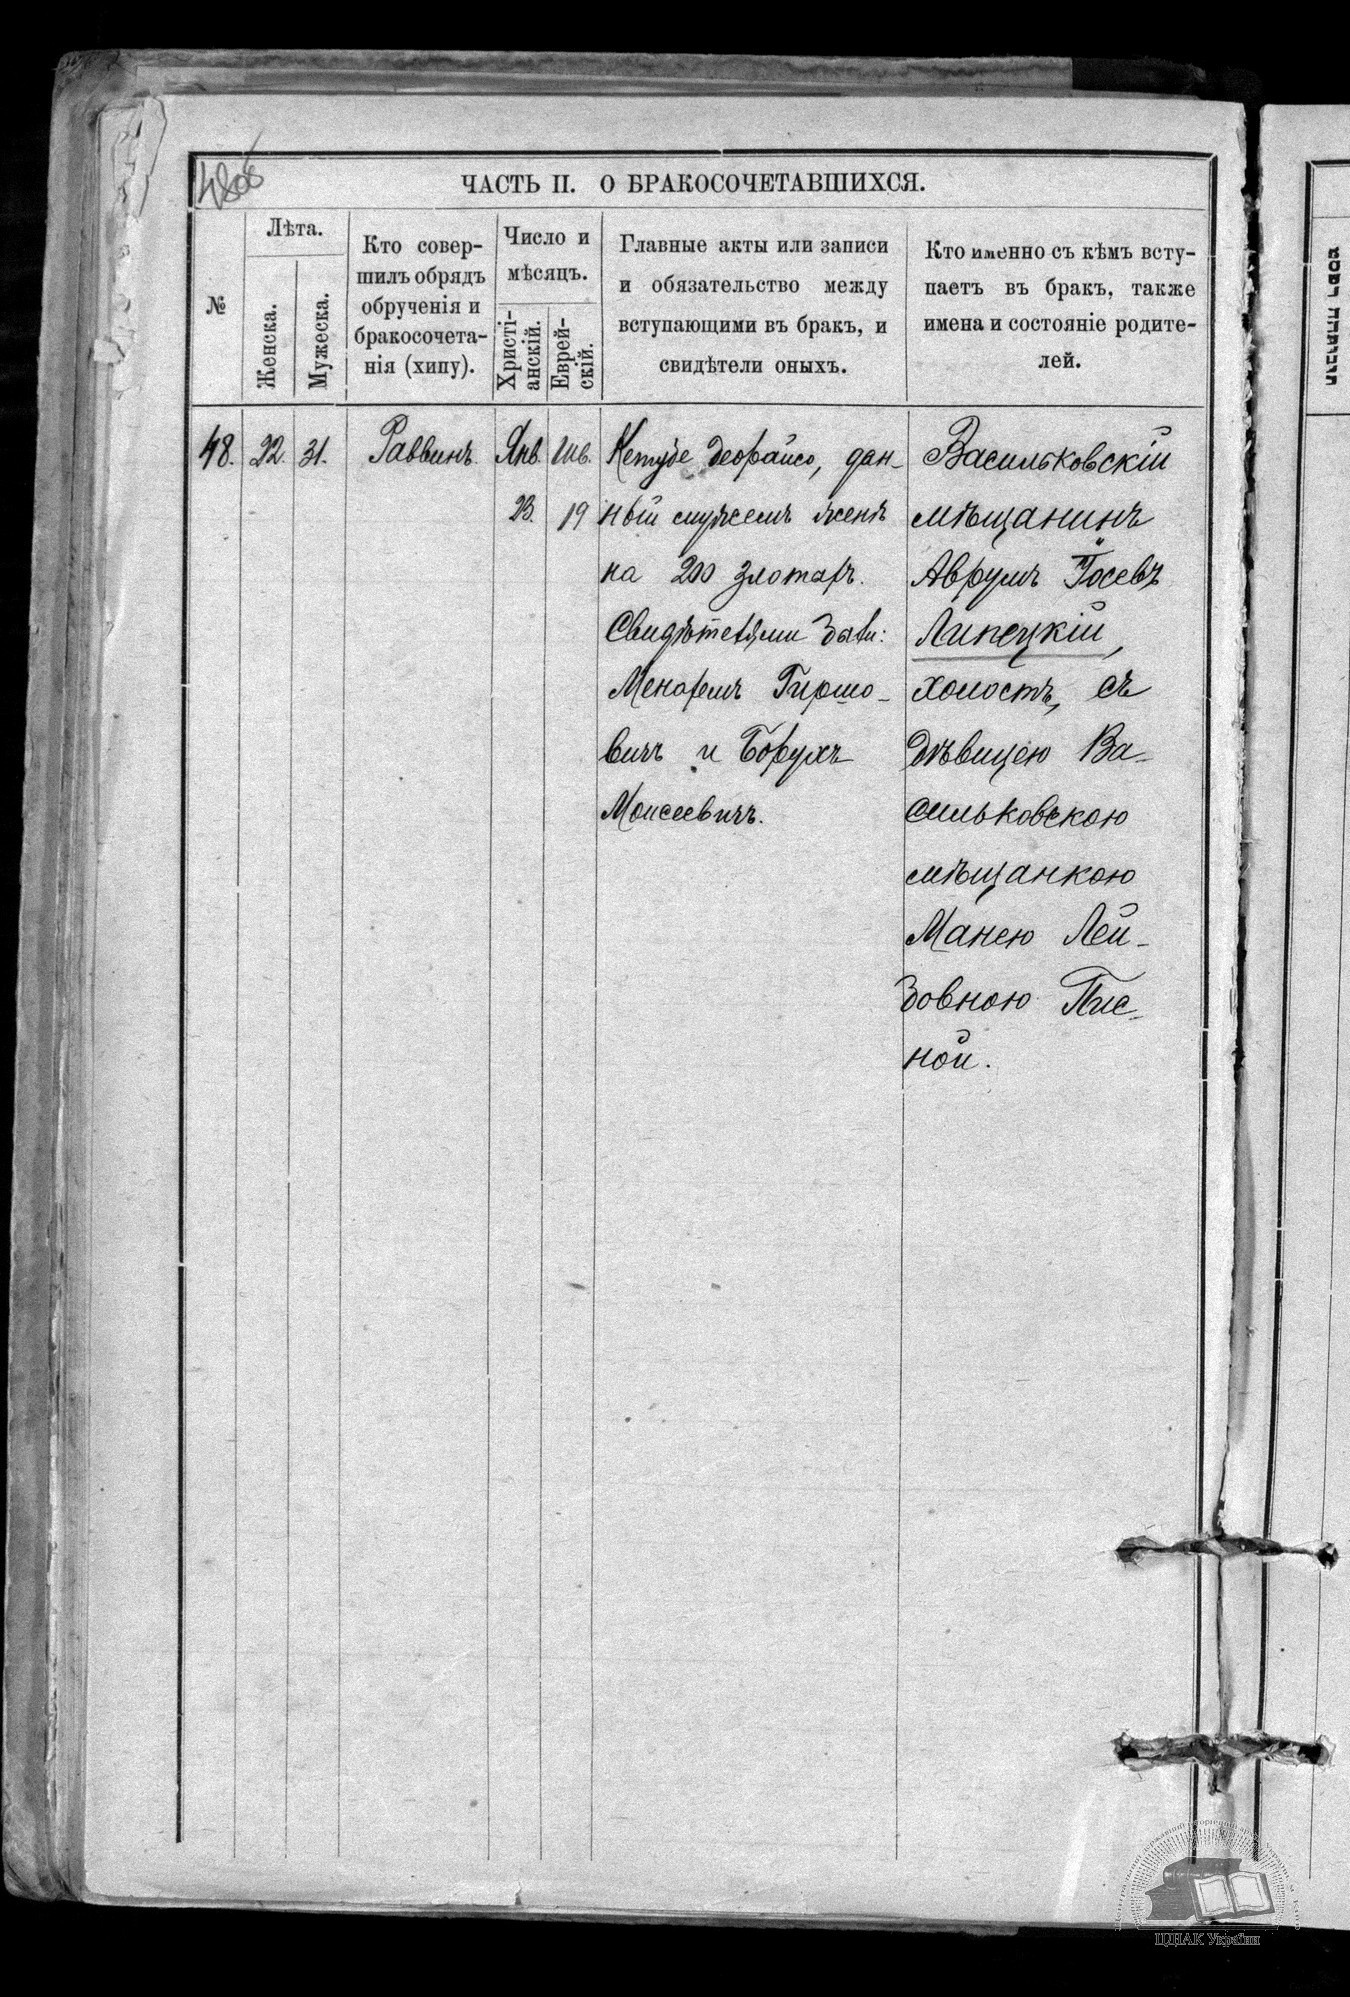 ЧАСТЬ II. О БРАКОСОЧЕТАВШИХСЯ.
№
Лѣта.
Женска.
Мужеска.
Кто совер-
шилъ обрядъ
обрученія и
бракосочета-
нія (хипу).
Число и
мѣсяцъ.
Христі-
анскій.
Еврей-
скій.
Главные акты или записи
и обязательство между
вступающими въ бракъ, и
свидѣтели оныхъ.
Кто именно съ кѣмъ всту-
паетъ въ бракъ, также
имена и состояніе родите-
лей.
48.
22.
31.
Раввинъ.
Янв.
23.
Шв.
19
Кетубе деорайсо, дан-
ный мужемъ женѣ
на 200 злотыхъ.
Свидѣтелями были:
Менахемъ Гиршо-
вичъ и Борухъ
Моисеевичъ.
Васильковскій
мѣщанинъ
Аврумъ Іосевъ
Липецкій,
холостъ, съ
дѣвицею Ва-
сильковскою
мѣщанкою
Манею Лей-
зовною Пис-
ной.
ЦДІАК України